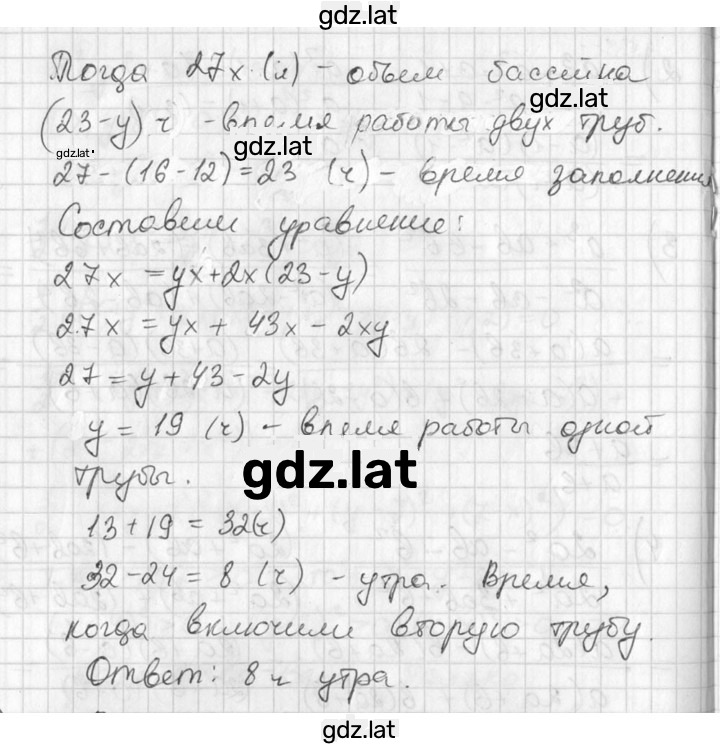 gdz.lat
Тогда 27x (л) - объем бассейна
gdz.lat
(23-y) ч - время работы двух труб.
gdz.lat
gdz.lat
27 - (16 - 12) = 23 (ч) - время заполнения
Составим уравнение:
27x = yx + 2x(23 - y)
27x = yx + 43x - 2xy
27 = y + 43 - 2y
y = 19 (ч) - время работы одной
gdz.lat
трубы.
13 + 19 = 32(ч)
32 - 24 = 8 (ч) - утра. Время,
когда включили вторую трубу.
Ответ: 8 ч утра.
gdz.lat